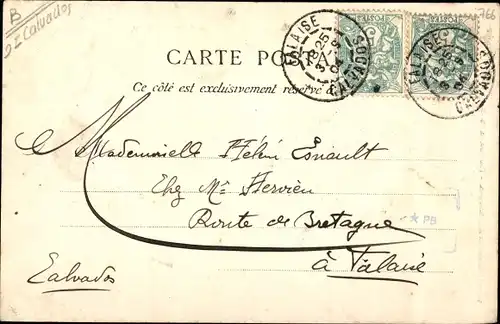 B
9 I Calvados
766
CARTE POSTAL
Ce côté est exclusivement réservé à
FALAISE
CALVADOS
FALAISE
CALVADOS
Mademoiselle Hélène Esnault
Chez Mme Hervieu
Route de Bretagne
à Falaise
Calvados
★ PB